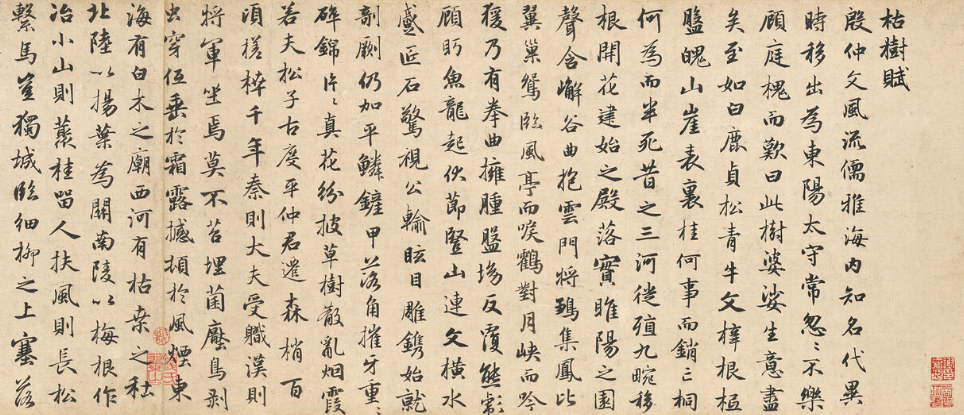 枯樹賦
殷仲文風流儒雅海內知名代異
時移出為東陽太守常忽忽不樂
顧庭槐而歎曰此樹婆娑生意盡
矣至如白鹿貞松青牛文梓根柢
盤魄山崖表裏桂何事而銷亡桐
何為而半死昔之三河徙殖九畹移
根開花建始之殿落實睢陽之園
聲含嶰谷曲抱雲門將鶵集鳳比
翼巢鴛臨風亭而唳鶴對月峽而吟
猨乃有拳曲擁腫盤坳反覆熊彪
顧盼魚龍起伏節豎山連文橫水
蹙匠石驚視公輸眩目雕鐫始就
剞劂仍加平鱗鏟甲落角摧牙重重
碎錦片片真花紛披草樹散亂烟霞
若夫松子古度平仲君遷森梢百
頃槎枿千年秦則大夫受職漢則
將軍坐焉莫不苔埋菌壓鳥剥
虫穿低垂於霜露撼頓於風煙東
海有白木之廟西河有枯桑之社
北陸以揚葉為關南陵以梅根作
冶小山則叢桂留人扶風則長松
繫馬豈獨城臨細柳之上塞落